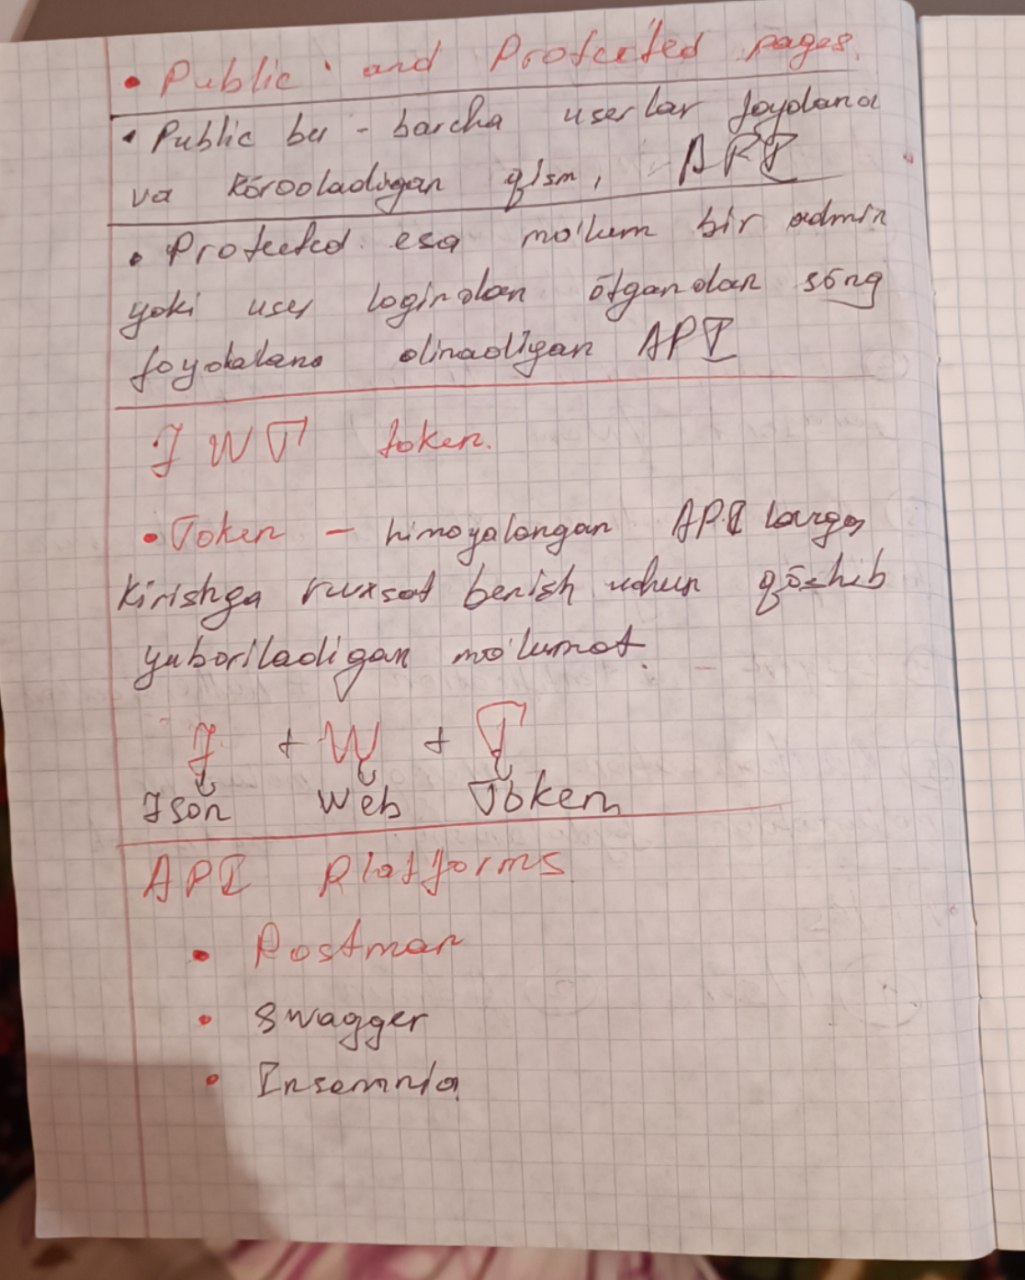 • Public and Protected pages.
• Public bu - barcha userlar foydalana
va körooladigan qism, API
• Protected esa ma'lum bir admin
yoki user logindan ötgandan söng
foydalana olinadigan API
JWT token.
• Token - himoyalangan API larga
kirishga ruxsat berish uchun qöshib
yuboriladigan ma'lumot.
J + W + T
Json Web Token
API Platforms
• Postman
• Swagger
• Insomnia